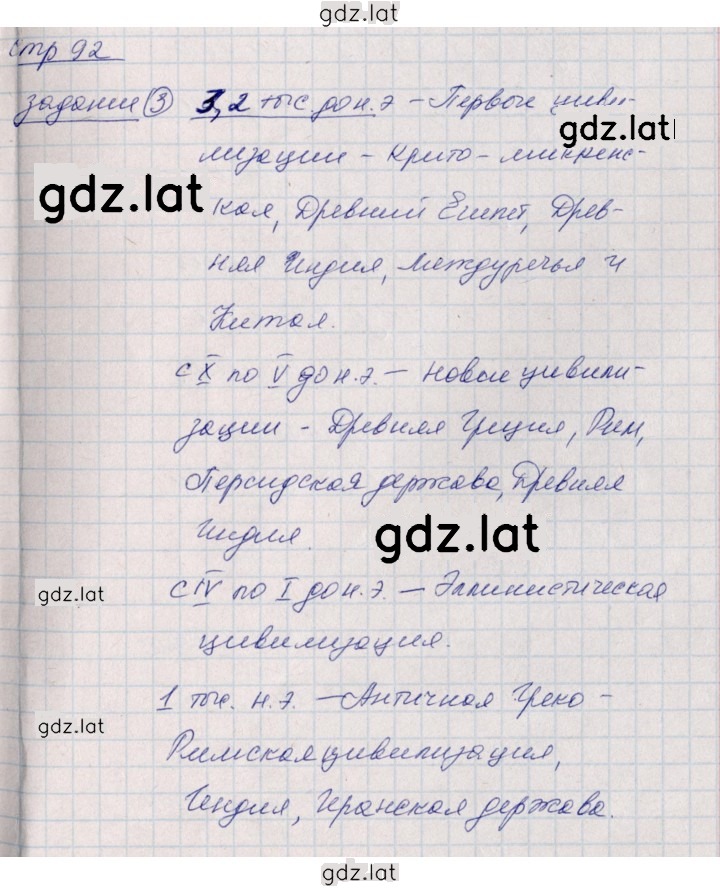 gdz.lat
стр 92
задание 3 3,2 тыс. до н. э - Первые циви-
gdz.lat
лизации - Крито-микренс-
gdz.lat
кая, Древний Египет, Древ-
няя Индия, Междуречья и
Китая.
с X по V до н. э. - новые цивили-
зации - Древняя Греция, Рим,
Персидская держава, Древняя
Индия.
gdz.lat
с IV по I до н. э. - Эллинистическая
gdz.lat
цивилизация.
1 тыс. н. э. - Античная Греко-
gdz.lat
Римская цивилизация,
Индия, Иранская держава.
gdz.lat